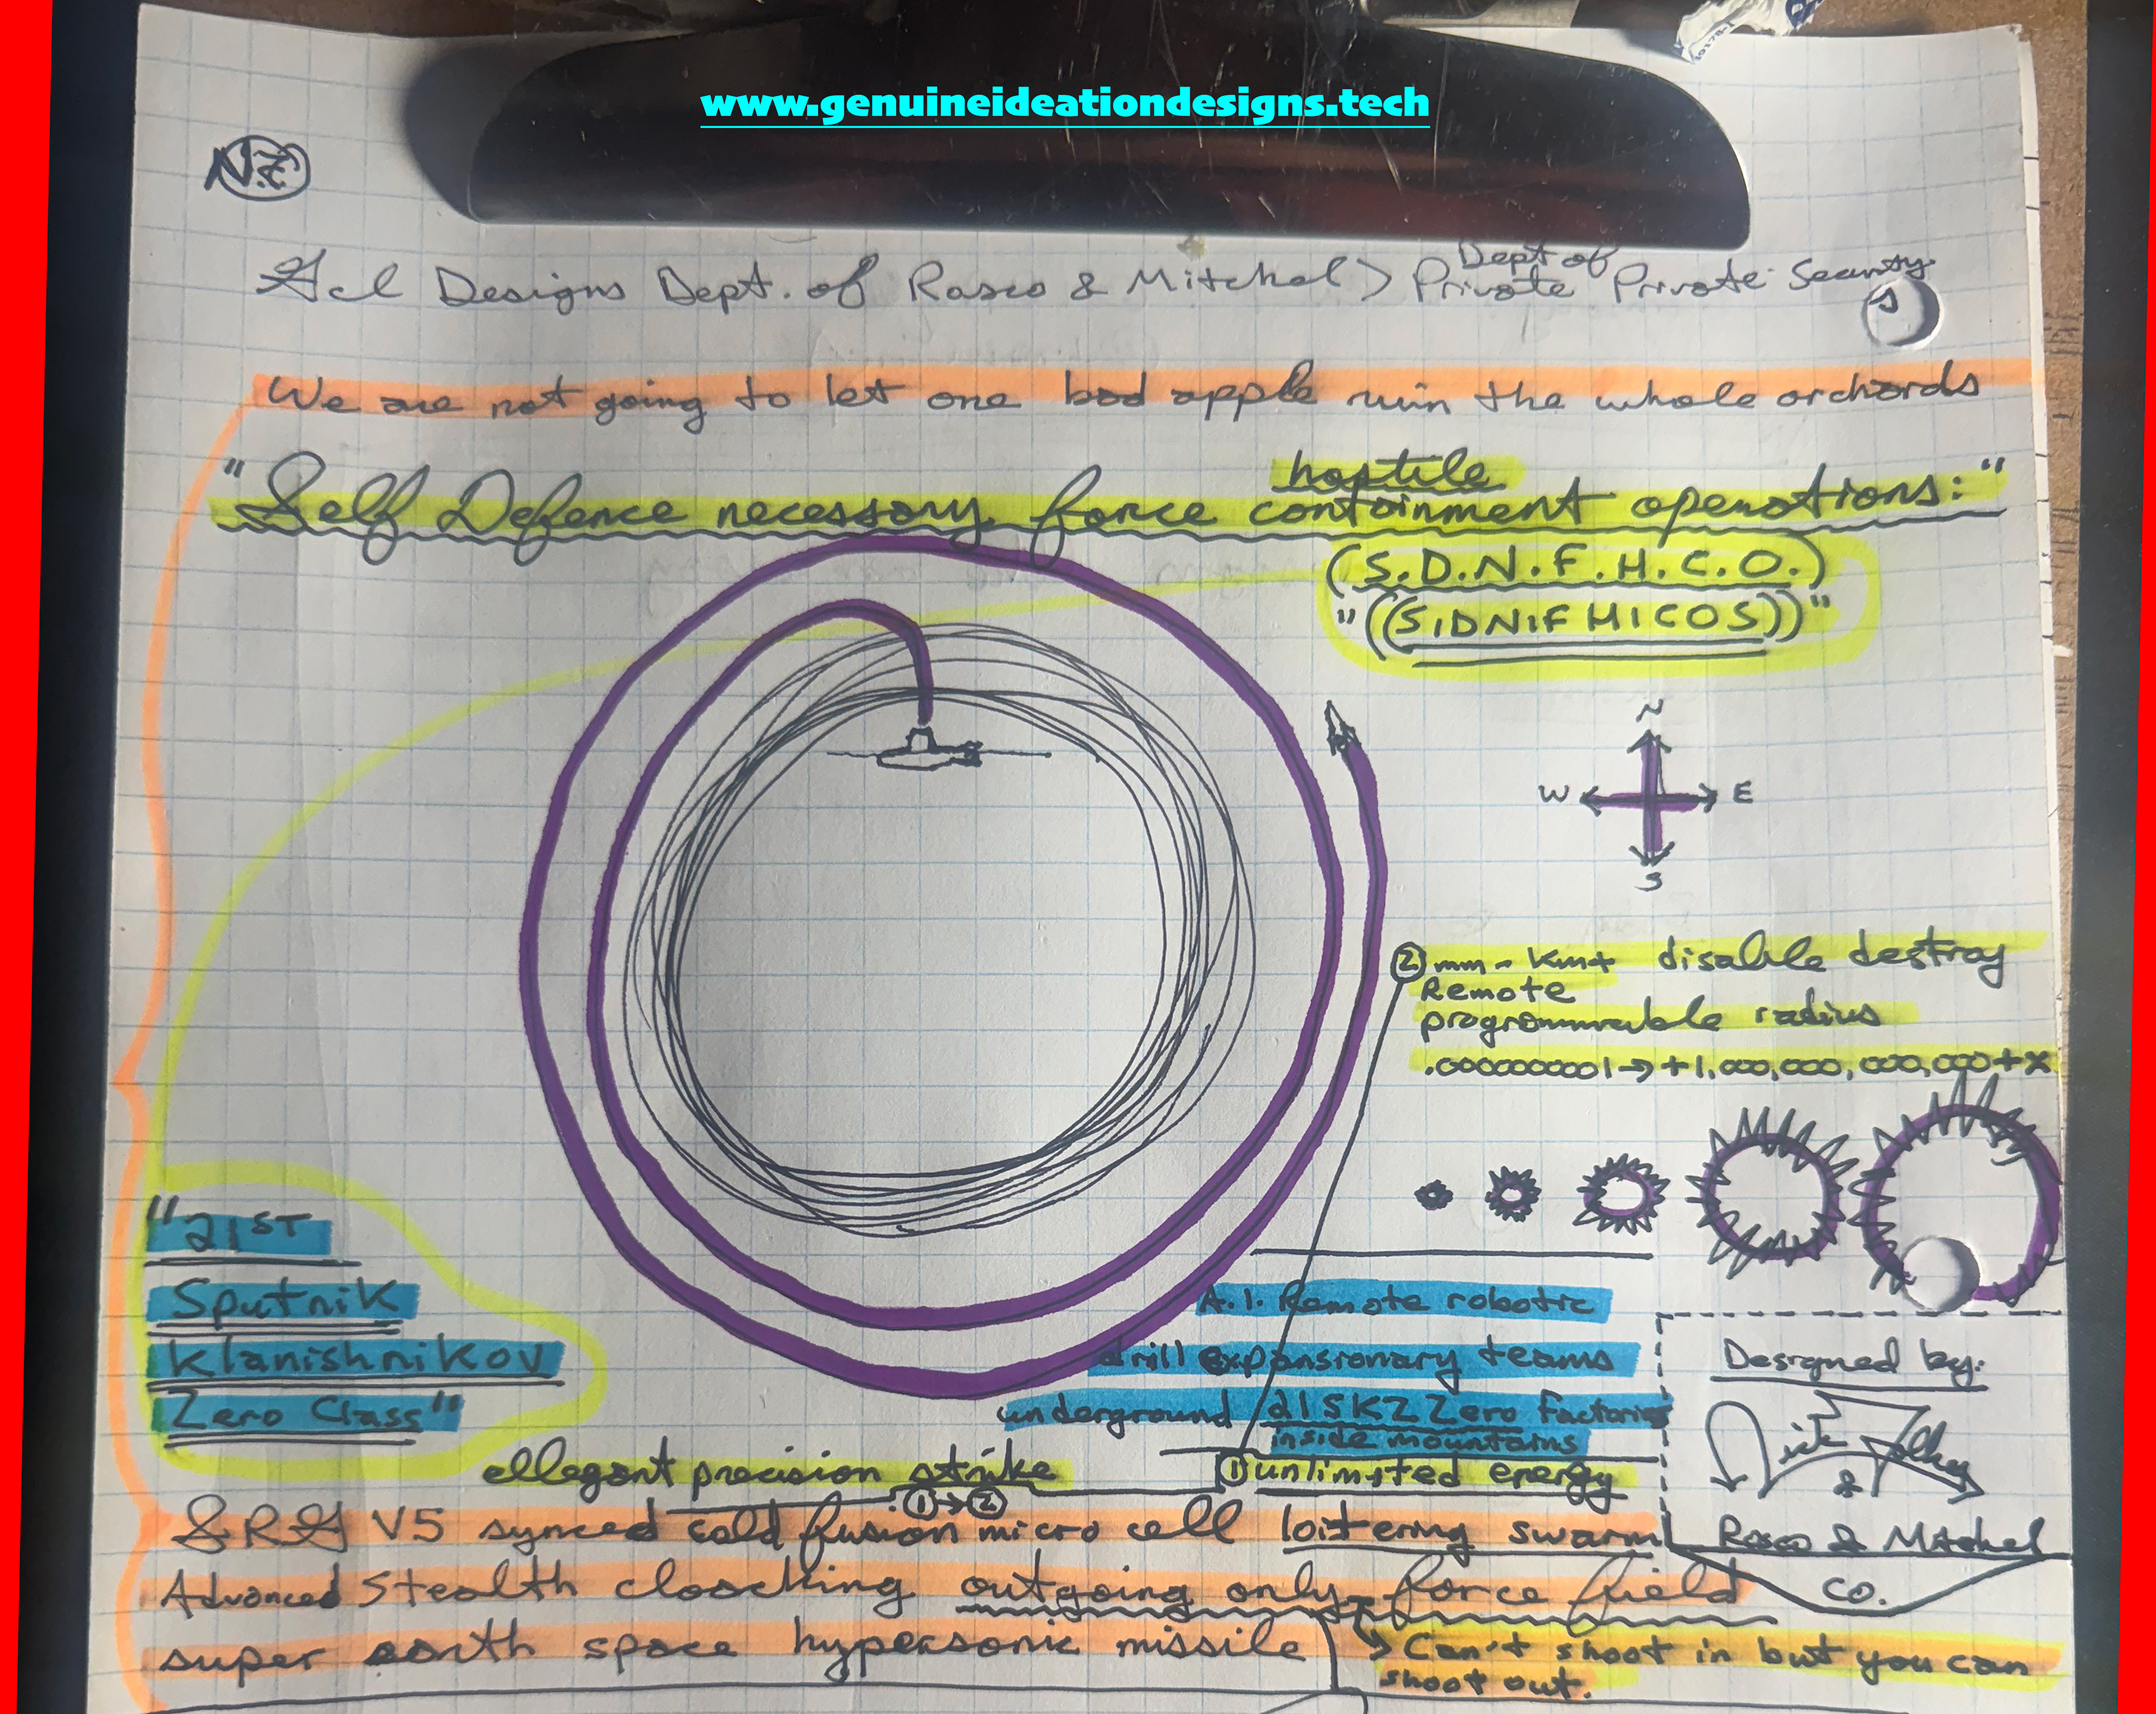 www.genuineideationdesigns.tech
N.Z
Designs Dept. of Rasco & Mitchel > Dept of Private Private Security
We are not going to let one bad apple ruin the whole orchards
"Self Defence necessary force hostile containment operations:"
(S.D.N.F.H.C.O.)
"((SIDNIFHICOS))"
N
W E
S
② mm - Km+ disable destroy
Remote
programmable radius
.0000000001→+1,000,000,000,000+x
"21ST
Sputnik
Klanishnikov
Zero Class"
A.I. Remote robotic
drill expansionary teams
underground 21SKZ Zero Factories
inside mountains
ellegant precision strike
①→②
① unlimited energy
SRG V5 synced cold fusion micro cell loitering swarm
Advanced Stealth cloacking outgoing only force field
super earth space hypersonic missile
Can't shoot in but you can
shoot out.
Designed by:
&
Rasco & Mitchel
CO.